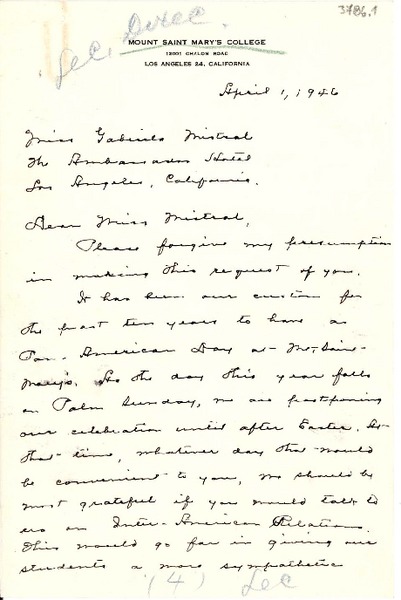 3786.1
Sec. Direc.
MOUNT SAINT MARY'S COLLEGE
12001 CHALON ROAD
LOS ANGELES 24, CALIFORNIA
April 1, 1946
Miss Gabriela Mistral
The Ambassador Hotel
Los Angeles, California.
Dear Miss Mistral,
Please forgive my presumption
in making this request of you.
It has been our custom for
the past ten years to have a
Pan-American Day at Mt. Saint
Mary's. As the day this year falls
on Palm Sunday, we are postponing
our celebration until after Easter. At
that time, whatever day that would
be convenient to you, we should be
most grateful if you would talk to
us on Inter-American Relations.
This would go far in giving our
students a more sympathetic
(4) Sec